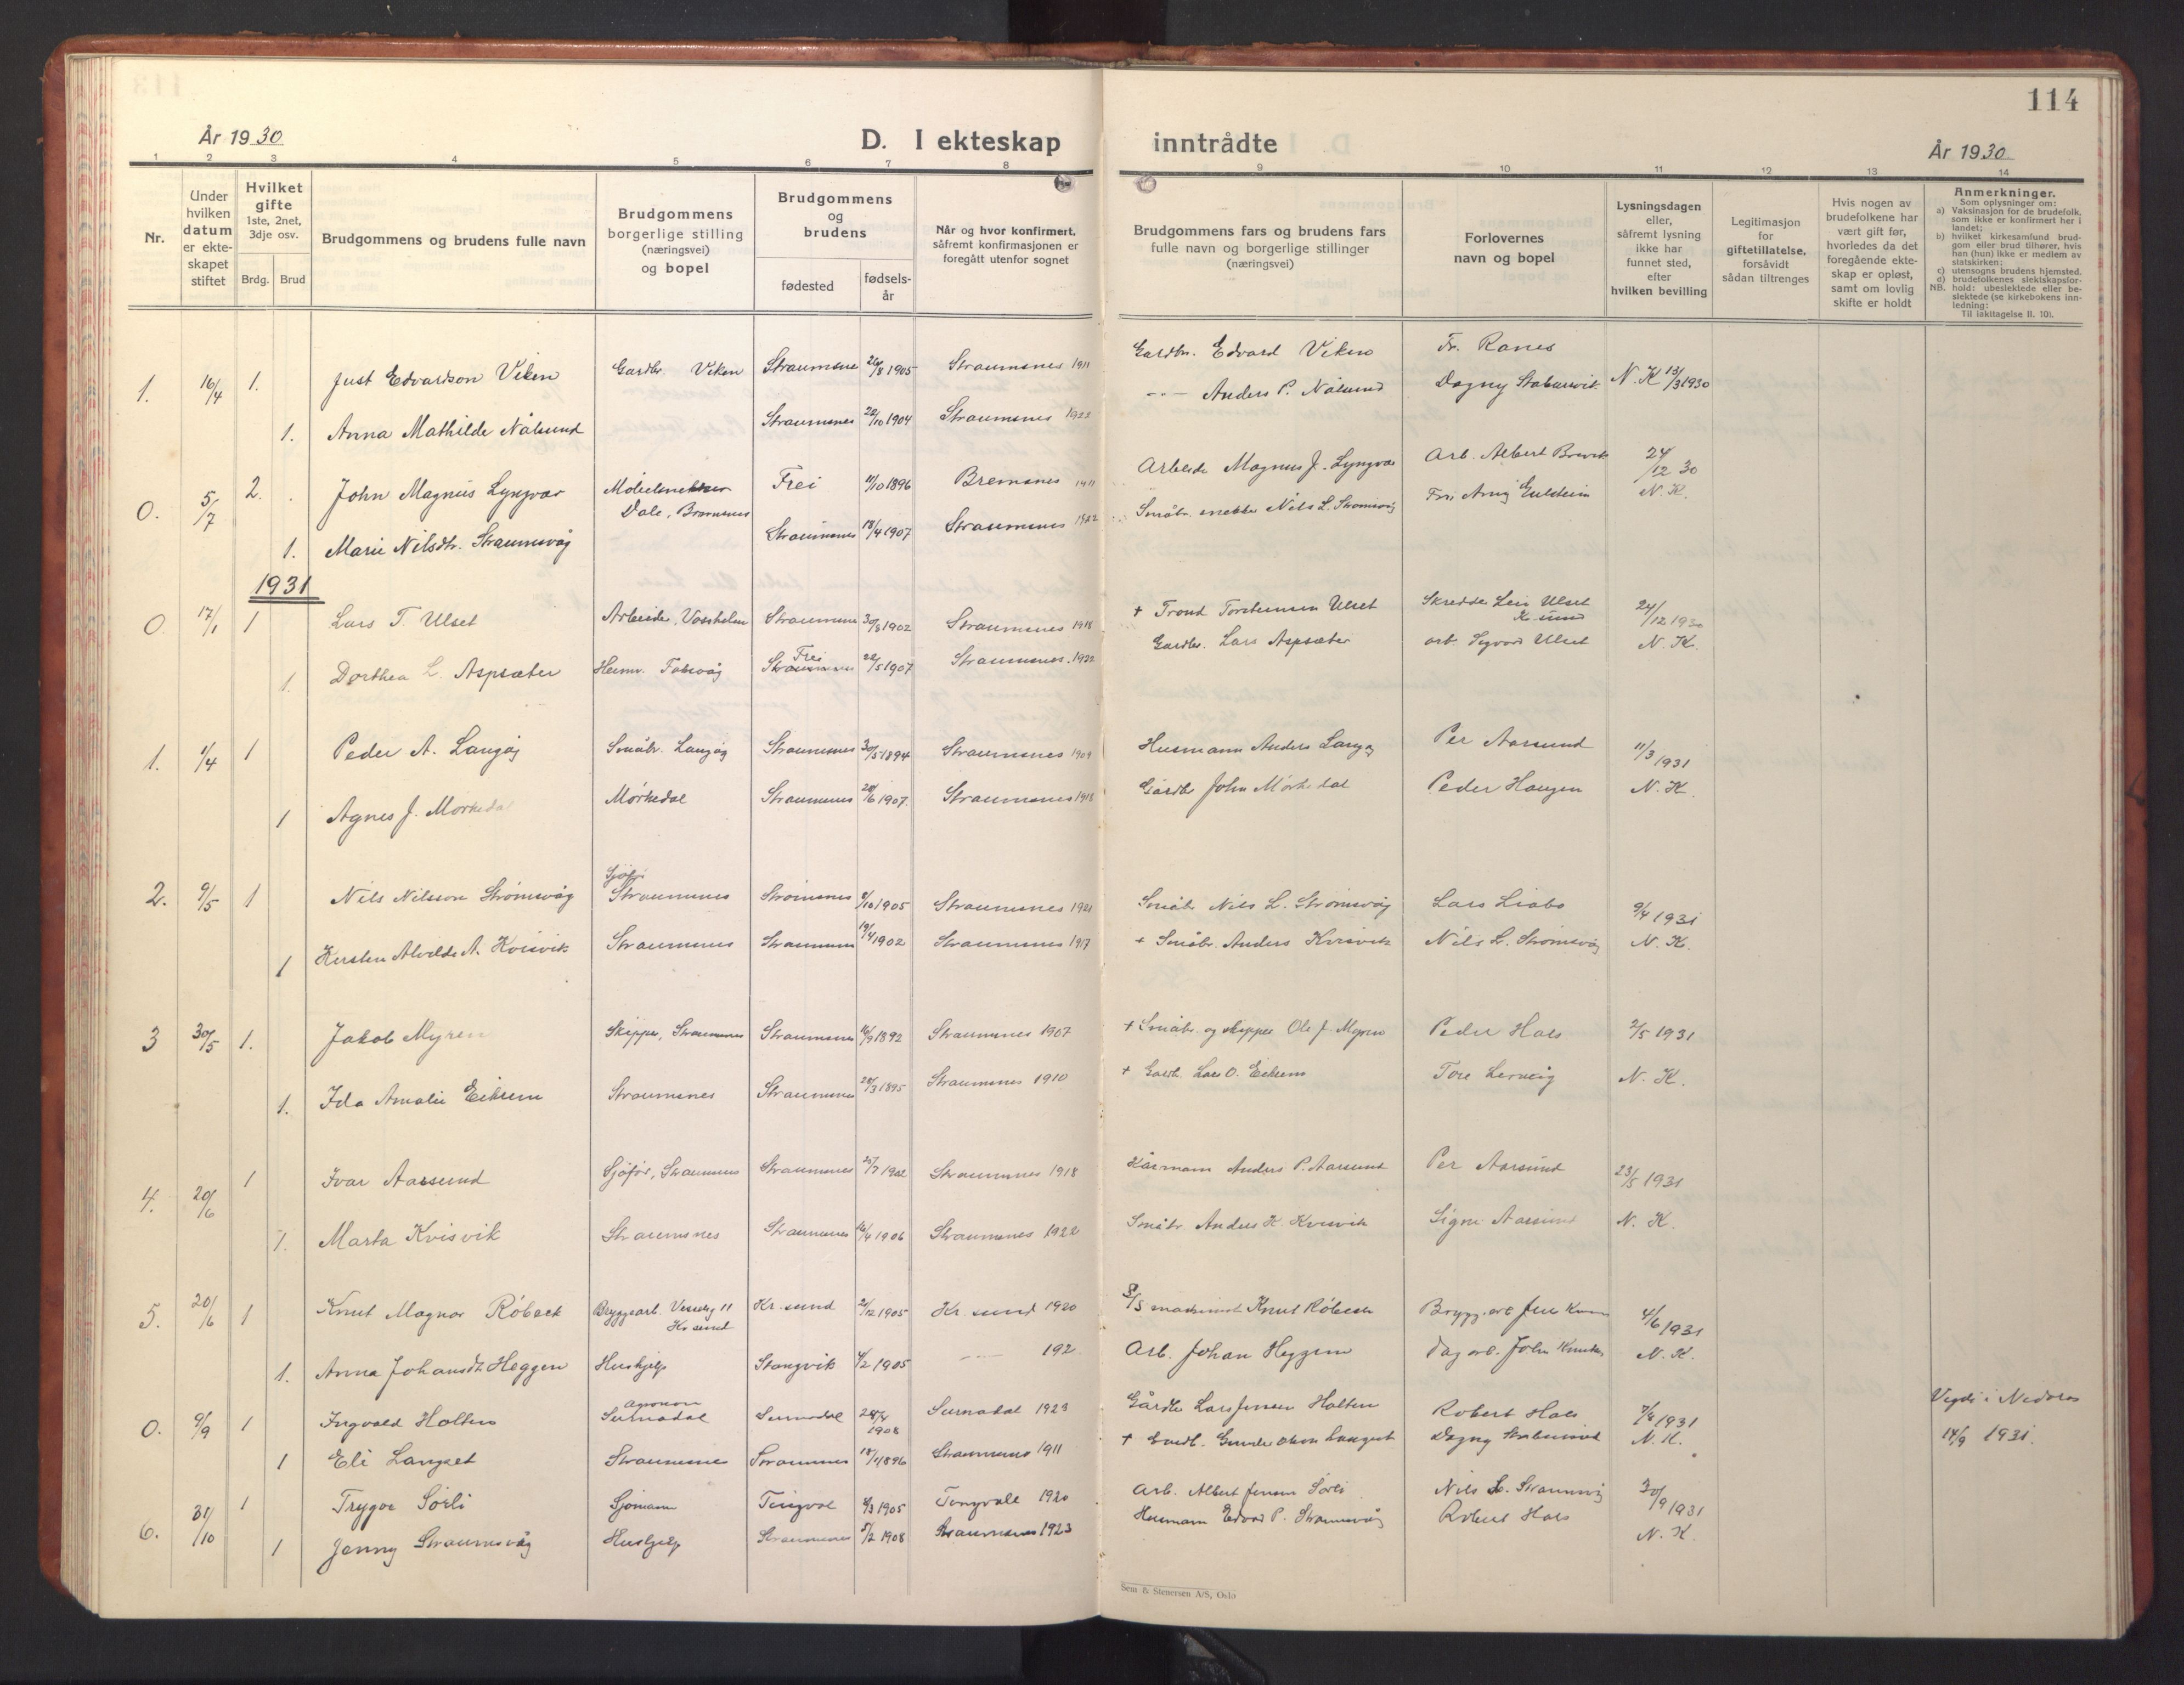 114
År 1930
D. I ekteskap inntrådte
År 1930
1 2 3 4 5 6 7 8 9 10 11 12 13 14
Nr.
Under hvilken datum er ekte-skapet stiftet
Hvilket gifte 1ste, 2net, 3dje osv.
Brdg. Brud
Brudgommens og brudens fulle navn
Brudgommens borgerlige stilling (næringsvei) og bopel
Brudgommens og brudens
fødested
fødsels-år
Når og hvor konfirmert, såfremt konfirmasjonen er foregått utenfor sognet
Brudgommens fars og brudens fars fulle navn og borgerlige stillinger (næringsvei)
Forlovernes navn og bopel
Lysningsdagen eller, såfremt lysning ikke har funnet sted, efter hvilken bevilling
Legitimasjon for giftetillatelse, forsåvidt sådan tiltrenges
Hvis nogen av brudefolkene har vært gift før, hvorledes da det foregående ekte-skap er opløst, samt om lovlig skifte er holdt
Anmerkninger.
Som oplysninger om:
a) Vaksinasjon for de brudefolk, som ikke er konfirmert her i landet;
b) hvilket kirkesamfund brud-gom eller brud tilhører, hvis han (hun) ikke er medlem av statskirken;
c) utensogns brudens hjemsted.
d) brudefolkenes slektskapsfor-hold: ubeslektede eller be-slektede (se kirkebokens inn-ledning:
NB.
Til iakttagelse II. 10).
1. 16/4 1. Just Edvardson Viken Gardbr. Viken Straumsnes 26/8 1905 Straumsnes 1911 Gardbr. Edvard Viken Fr. Ranes N. K 13/3 1930
1. Anna Mathilde Nålsund Straumsnes 22/10 1904 Straumsnes 1922 -"- Anders P. Nålsund Dagny Stabursvik
0. 5/7 2. John Magnus Lyngvær Møbelsnekker Dale, Bremsnes Frei 11/10 1896 Bremsnes 1911 Arbeide Magnus J. Lyngvær Arb. Albert Brevik 24/12 30
1. Marie Nilsdtr. Straumsvåg Straumsnes 18/4 1907 Straumsnes 1922 Småbr. snekker Nils L. Strømsvåg N. K.
1931
0. 17/1 1 Lars T. Ulset Arbeide, Straumsnes 30/8 1902 Straumsnes 1918 + Trond Torstensen Ulset Skredder Ulset Kr.sund 24/12 1930
1. Dorthea L. Aspsæter Heimv. Straumsnes Frei 22/5 1907 Straumsnes. 1922 Gardbr. Lars Aspsæter arb. Sigvard Ulset N. K.
1. 1/4 1 Peder A. Langøy Småbr. Langøy Straumsnes 30/5 1894 Straumsnes 1909 Husmann Anders Langøy Per Aarsund 11/3 1931
1 Agnes J. Mørkedal Mørkedal Straumsnes 20/6 1907. Straumsnes 1918 Gårdbr John Mørkedal Peder Haugen N. K.
2. 9/5 1 Nils Nilsson Strømsvåg Sjåfør Straumsnes Straumsnes 8/10 1905 Straumsnes 1921 Småbr Nils L. Strømsvåg Lars Liabø 9/4 1931
1 Kirsten Alvilde A. Kvisvik Straumsnes Straumsnes 19/4 1902 Straumsnes 1917 + Småbr. Anders Kvisvik Nils L. Strømsvåg N. K.
3 30/5 1. Jakob Myren Skipper, Straumsnes Straumsnes 16/9 1892 Straumsnes 1907 + Småbr. og skipper Ole J. Myren Peder Hals 2/5 1931
1. Ida Amalie Eikrem Straumsnes Straumsnes 28/3 1895 Straumsnes 1910 + Gardb. Lars O. Eikrem Tore Lervik N. K.
4. 20/6 1 Ivar Aarsund Sjåfør, Straumsnes Straumsnes 25/7 1902 Straumsnes 1918 Kårmann Anders P. Aarsund Per Aarsund 23/5 1931
1. Marta Kvisvik Straumsnes Straumsnes 16/4 1906 Straumsnes 1922 Småbr Anders K. Kvisvik Signe Aarsund N. K.
5. 20/6 1 Knut Magnar Røbeck Bryggearb. 11 Kr sund Kr. sund 2/12 1905 Kr. sund 1920 maskinist Knut Røbeck Brygg. arb 4/6 1931
1. Anna Johansdt. Heggem Hushjelp Stangvik 4/2 1905 -"- 192 Arb. Johan Heggem Dag arb. John N. K.
0. 9/9 1 Ingvald Holten agronom Surnadal Surnadal 24/4 1908 Surnadal 1923 Gårdbr Lars Jensen Holten Robert Hals 7/8 1931 Vigdi i Nidaros
1 Eli Langset Straumsnes Straumsnes 18/4 1896 Straumsnes 1911 + Gardb. Gunder Olsen Langset Dagny Stabursvik N. K. 14/9 1931.
6. 31/10 1 Trygve Sørli Sjømann Tingvol 6/3 1905 Tingvoll 1920 Arb. Albert Jensen Sørli Nils L. Straumsvåg 30/9 1931
1 Jenny Straumsvåg Hushjelp Straumsnes 5/2 1908 Straumsnes 1923 Husmann Edvard P. Straumsvåg Robert Hals N. K.
Sem & Stenersen A/S, Oslo